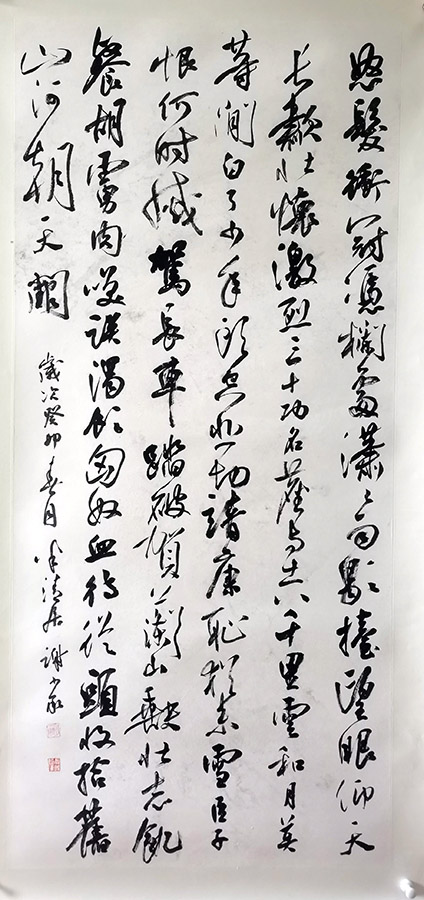 怒髮衝冠憑欄處瀟〻雨歇擡望眼仰天
長歗壯懷激烈三十功名塵与土八千里雲和月莫
等閒白了少年頭空悲切靖康恥猶未雪臣子
恨何时滅駕長車踏破賀蘭山缺壯志飢
餐胡虜肉咲談渴飲匈奴血待從頭收拾舊
山河朝天闕
歲次癸卯春月 清居 謝